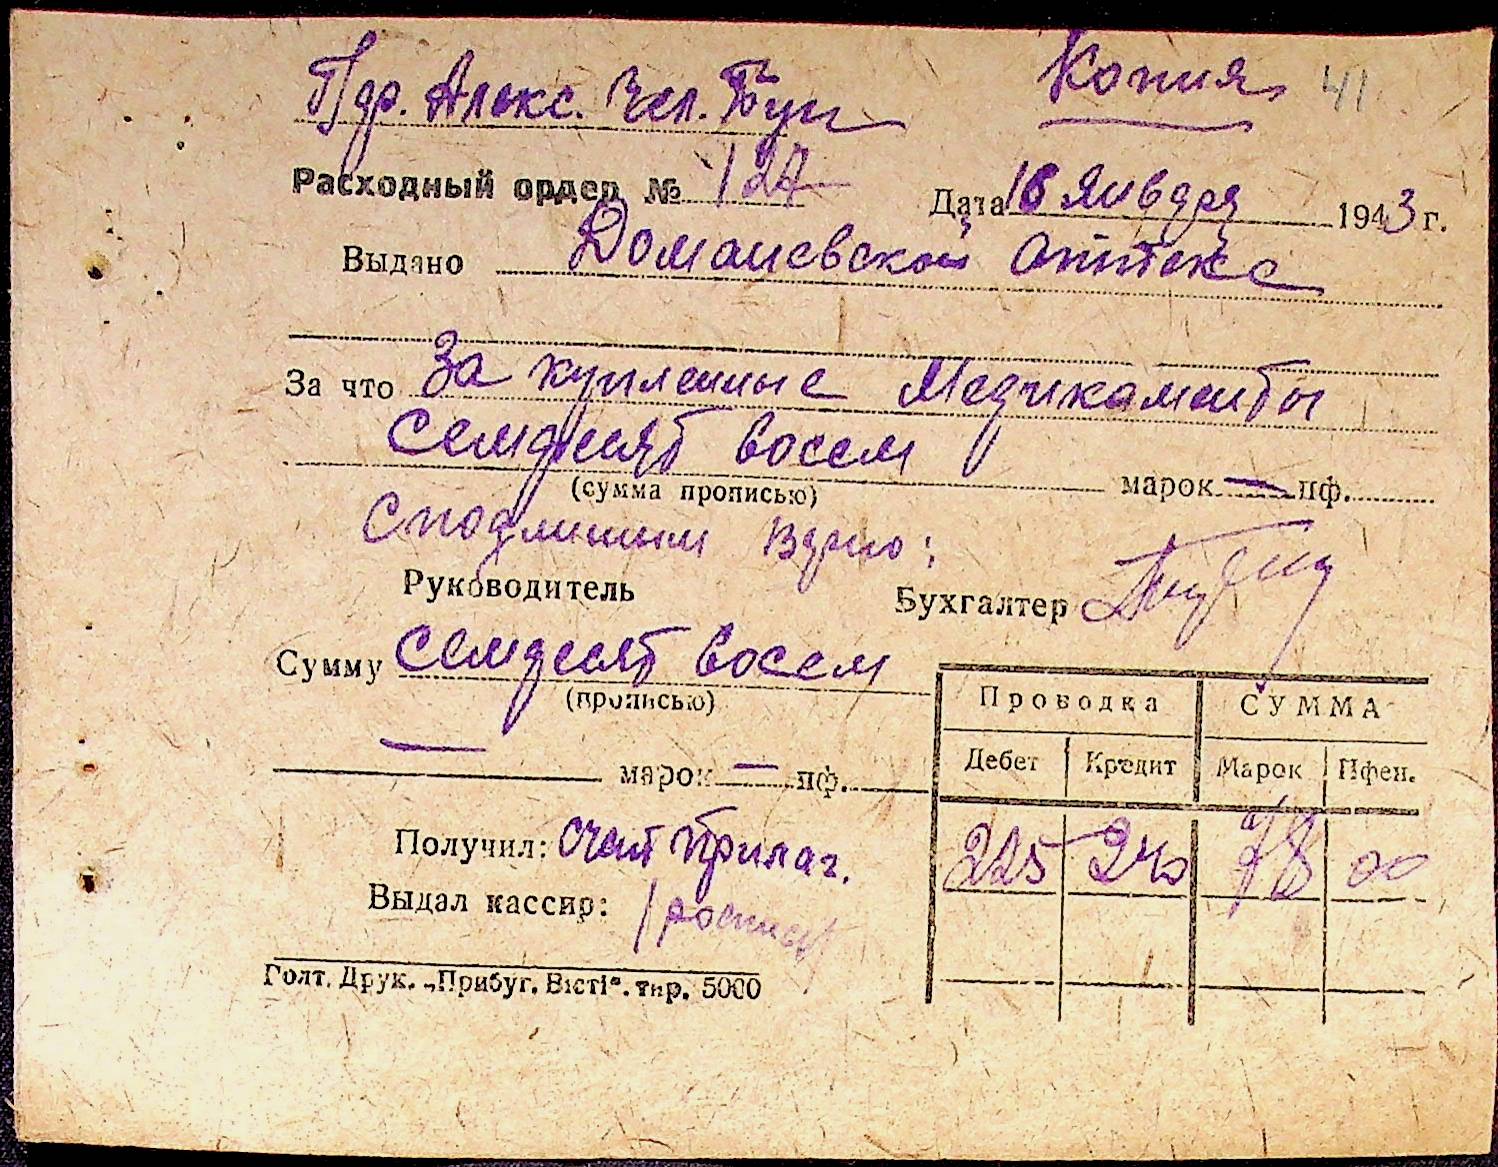 Копия 41
Пдр. Алекс. Чел. Бун
Расходный ордер № 127
Дата 16 января 1943 г.
Выдано Доманевской аптеке
За что За купленные Медикаменты
Семдесят восем марок — пф.
(сумма прописью)
С подлиным вдрно:
Руководитель Бухгалтер
Сумму Семдесят восем
(прописью)
— марок — пф.
Проводка СУММА
Дебет Кредит Марок Пфен.
225 240 78 00
Получил: счет прилаг.
Выдал кассир: / роспись /
Голт. Друк. „Прибуг. Вісті“. тир. 5000